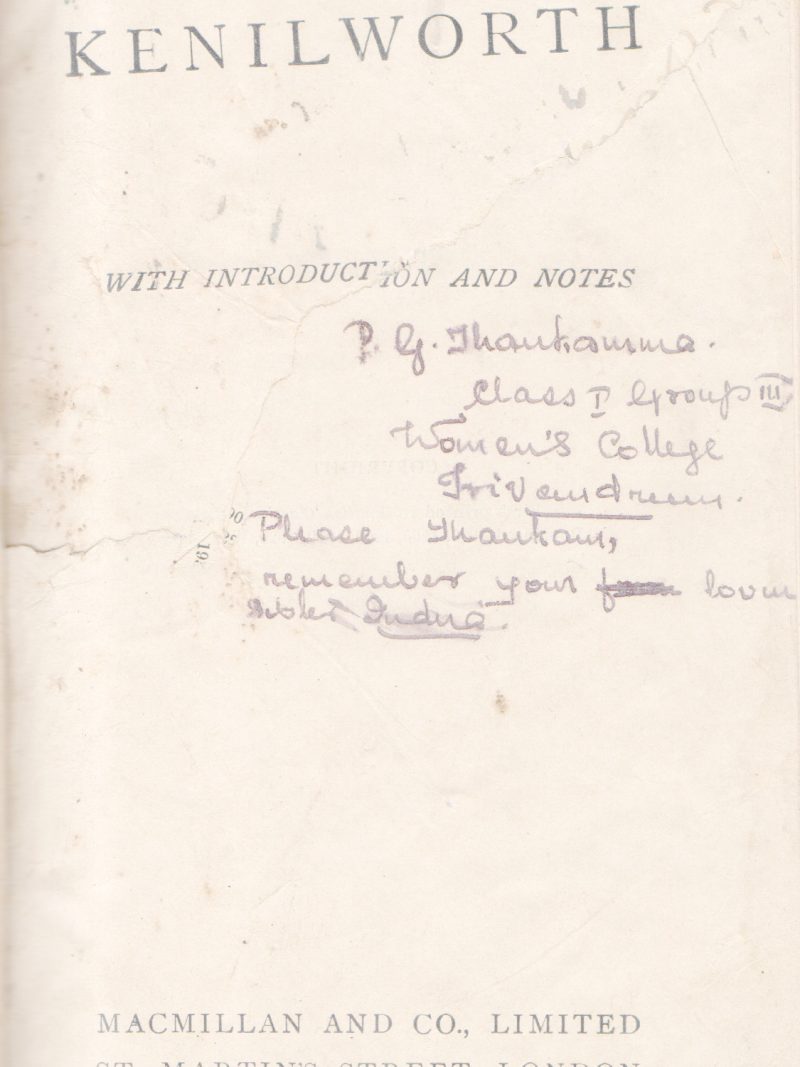 KENILWORTH
WITH INTRODUCTION AND NOTES
P. G. Thankamma.
Class I Group III
Women's College
Trivandrum.
Please Thankam,
remember your lovin
Indira.
MACMILLAN AND CO., LIMITED
ST. MARTIN'S STREET, LONDON